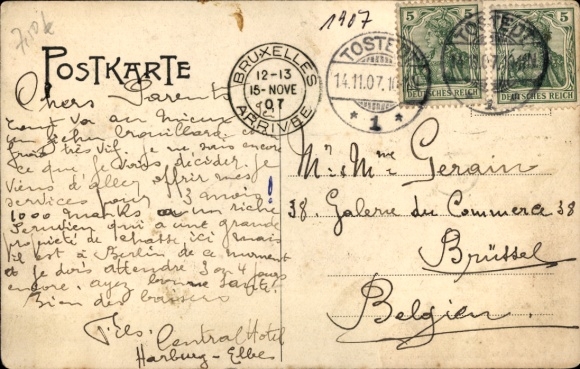 1907
POSTKARTE
BRUXELLES
12-13
15-NOVE
07
ARRIVÉE
TOSTEDT
14.11.07.
* 1 *
5
DEUTSCHES REICH
5
DEUTSCHES REICH
Chers Parents
tout va au mieux
un sichu brouillard et
froid très vif. je ne sais encore
ce que je vais décider. je
viens d'aller offrir mes
services pour 3 mois!
1000 marks a un riche
qui a une grande
de chasse ici mais
il est à Berlin de ce moment
et je dois attendre 3 on 4 jours
encore. ayez bonne santé.
Bien des baisers
Central Hotel
Harburg-Elbe
Mr. & Mme Gerain
38. Galerie du Commerce 38
Brüssel
Belgien.